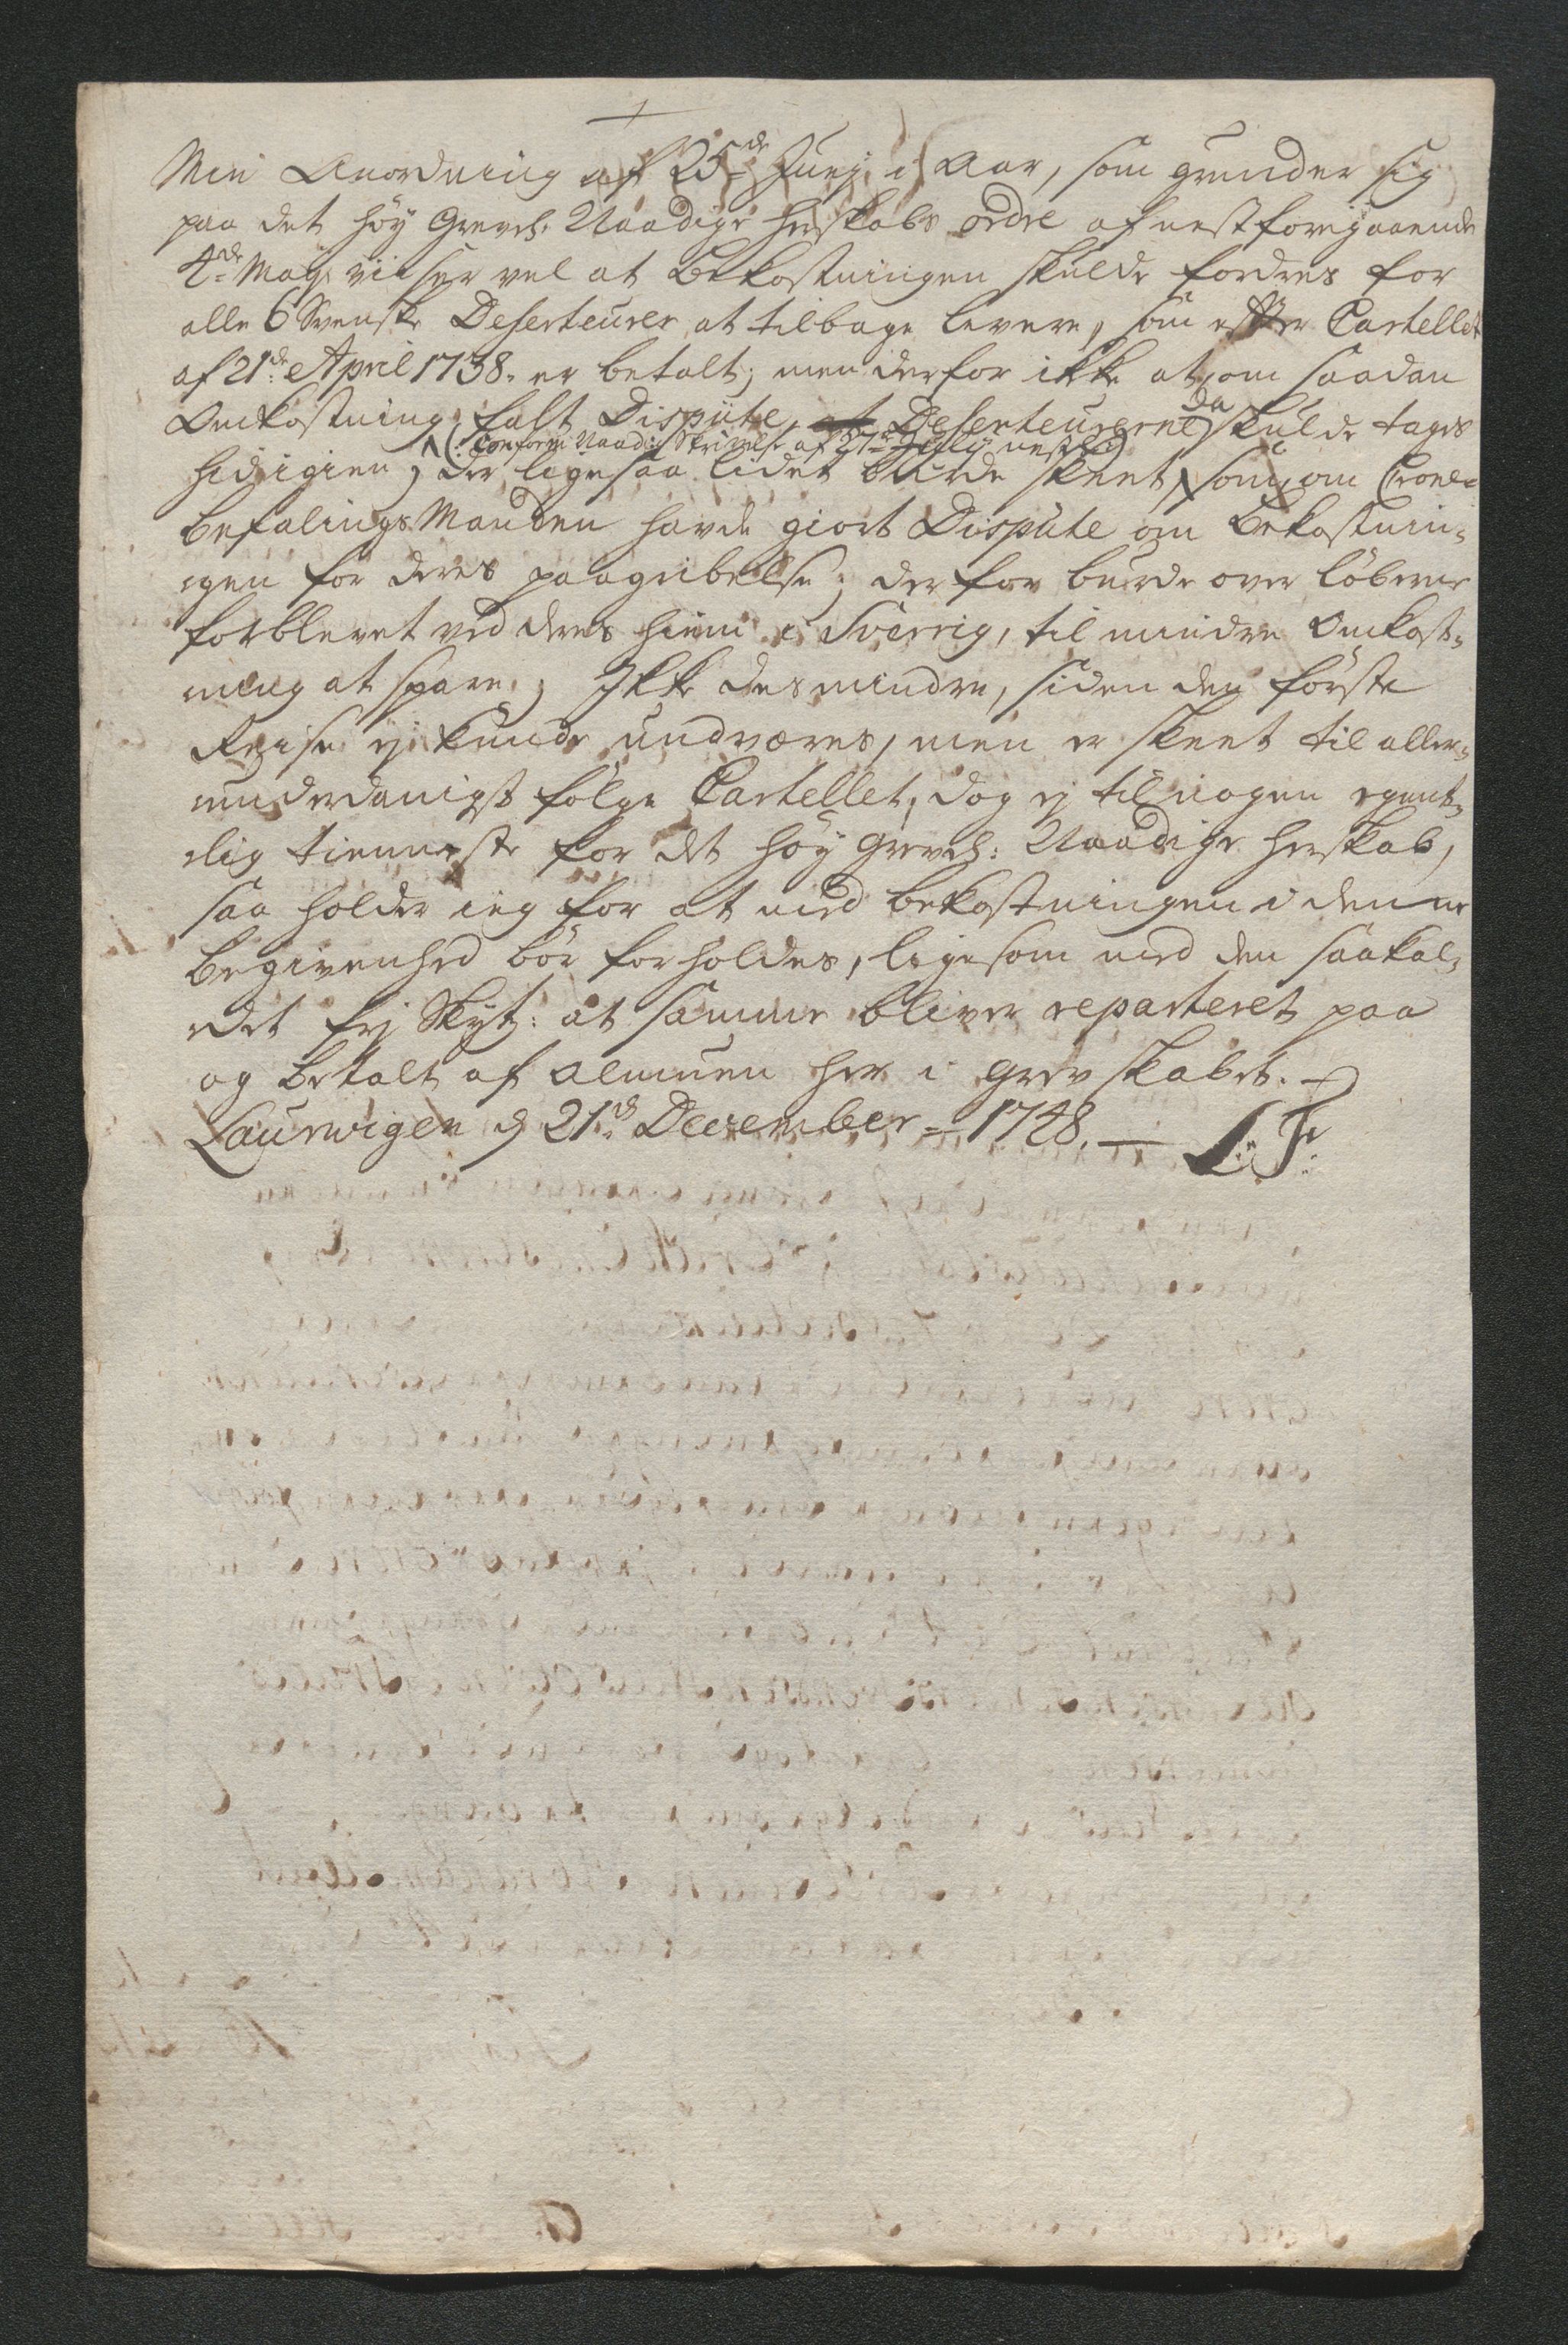 Min Anordning af 25de Junj i Aar, som grunder sig
paa det höy Grevel: Naadige Herskabs ordre af nestforrigaaende
4de Maij viiser vel at Bekostningen skulde fordres for
alle 6 Svenske Deserteurer at tilbage levere, som efter Cartellet
af 21de April 1738. er betalt; men derfor ikke at, om saadan
Omkostning falt Dispüte, at Deserteurerne da skulde tages
(: conform Naadig Skrivelse af 27de Julij nestl:)
hid igien, der ligesaa lidet burde skeet, som, om Crone-
BefalingsManden havde giort Dispute om Bekostnin-
gen for deres paagribelse; derfor burde over löberne
forblevet ved deres hiem i Sverrig, til mindre Omkost-
ning at spare; Ikke desmindre, siden den förste
Reise ej kunde undværes, men er skeet til aller-
underdanigst fölge Cartellet, dog ej til nogen egent-
lig tienneste for det höy Grevel: Naadige Herskab,
saa holder ieg for at med bekostningen i denne
Begivenhed bör forholdes, ligesom med den saakal-
det frj Skyt: at samme bliver reparteret paa
og betalt af Almuen her i Grevskabet.
Laurwigen d 21de December 1748. —